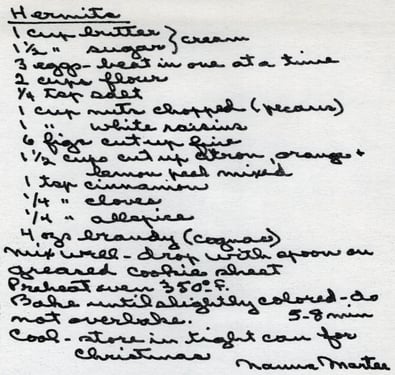 Hermits
1 cup butter } cream
1 1/2 " sugar
3 eggs - beat in one at a time
2 cups flour
1/4 tsp salt
1 cup nuts chopped (pecans)
1 " white raisins
6 figs cut up fine
1 1/2 cups cut up citron, orange +
lemon peel mixed
1 tsp cinnamon
1/4 " cloves
1/4 " allspice
4 ozs brandy (cognac)
Mix well - drop with spoon on
greased cookie sheet
Preheat oven 350° F.
Bake until slightly colored - do
not overbake. 5-8 min
Cool - store in tight can for
Christmas